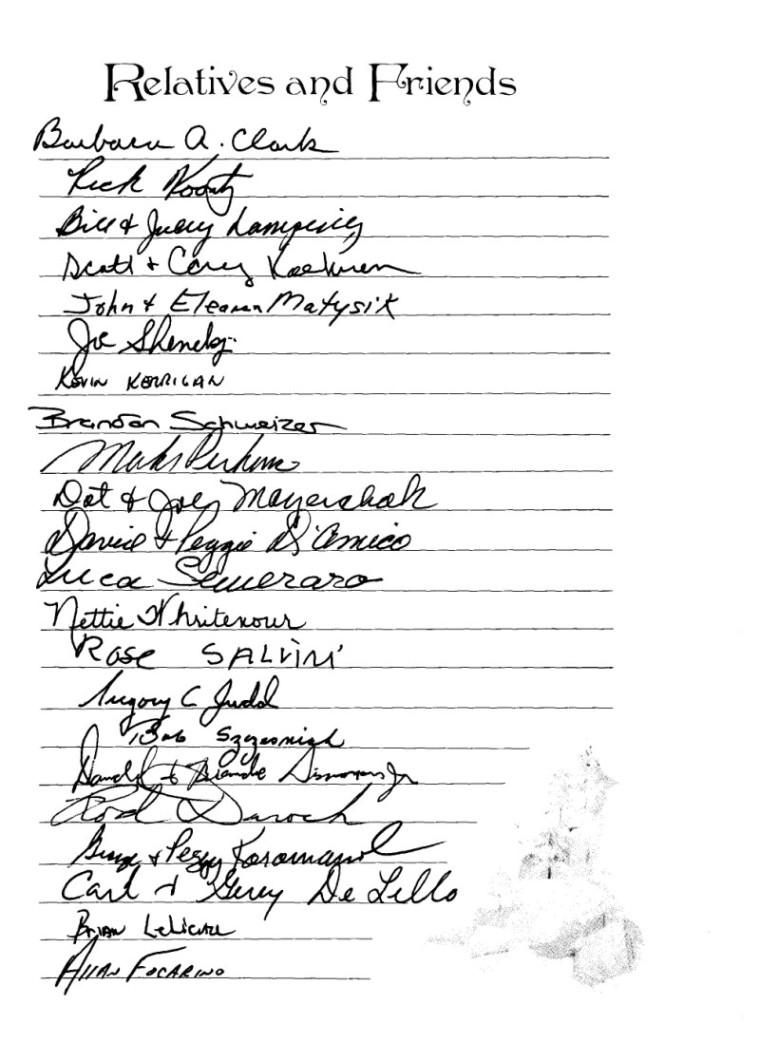 Relatives and Friends
Barbara A. Clark
Rick Koontz
Bill & Judy
Scott + Corey
John & Eleanor Matysik
Joe
KEVIN KERRIGAN
Brandon Schweizer
Mark Perkins
Dot & Joe Mayerchak
David & Peggie D'Amico
Luca Semeraro
Nettie Whritenour
ROSE SALVINI
Gregory C Judd
Bob Szczesniak
Harold & Blanche Jr
Rod Daroch
George & Peggy
Carl & Gerry De Lillo
BRIAN
Allan FOCARINO